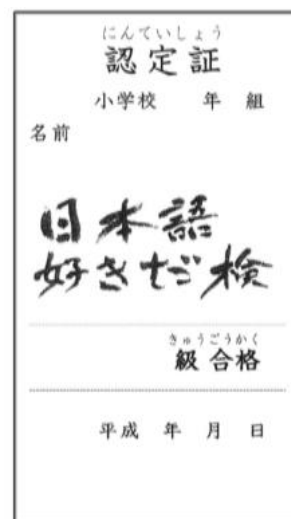 にんていしょう
認定証
小学校 年 組
名前
日本語
好きだ検
きゅうごうかく
級合格
平成 年 月 日